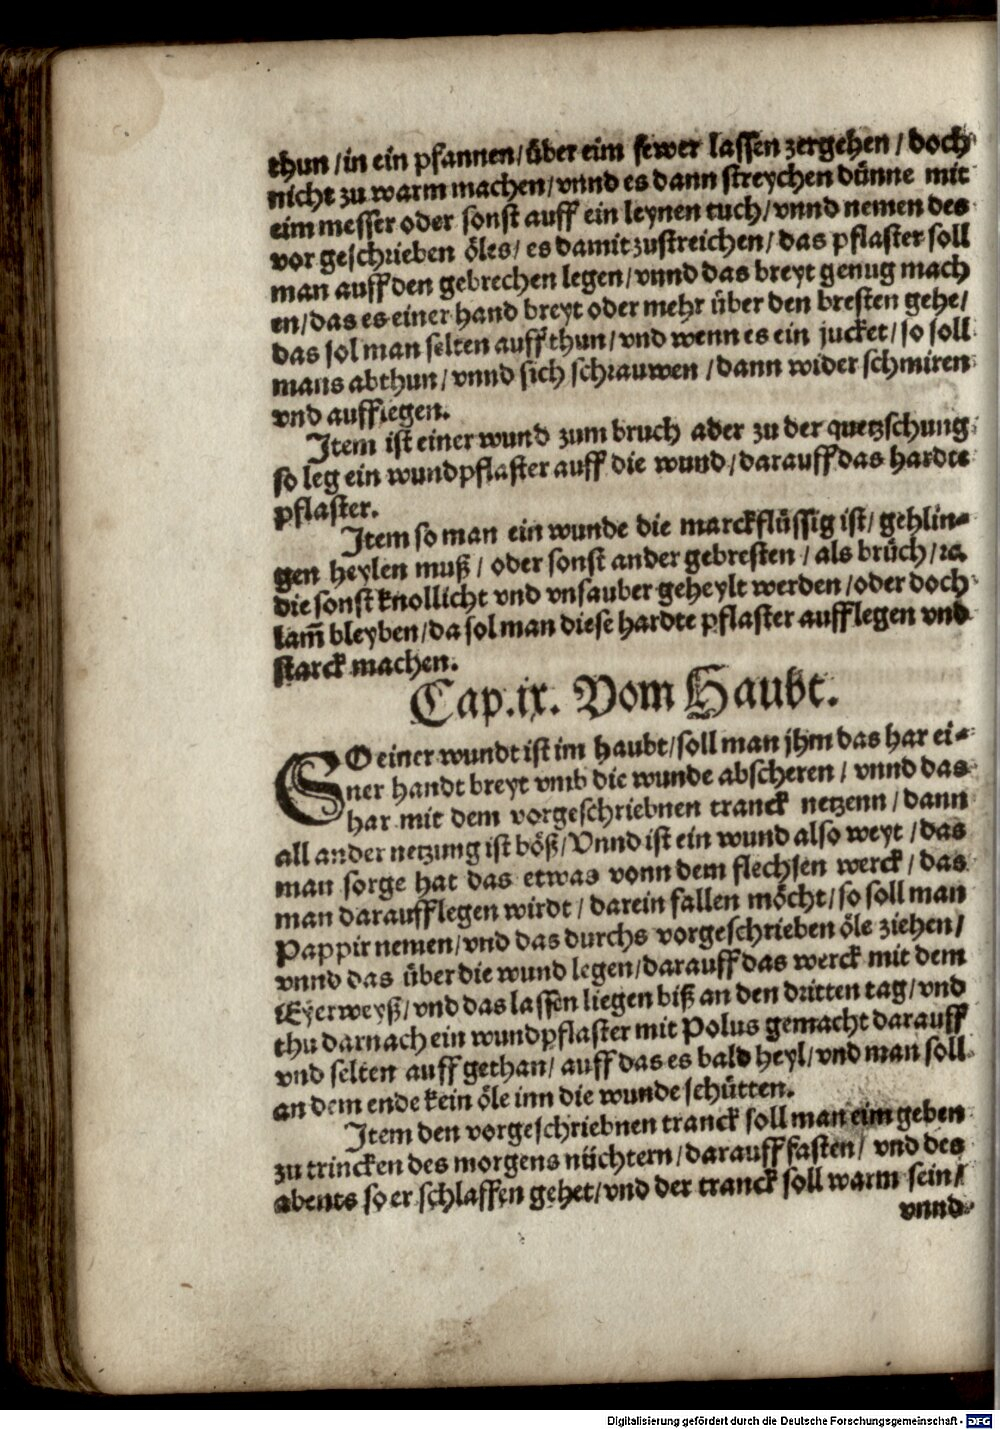 thun / in ein pfannen / über eim fewer lassen zergehen / doch
nicht zu warm machen / vnnd es dann streychen dünne mit
eim messer oder sonst auff ein leynen tuch / vnnd nemen des
vor geschrieben öles / es damit zustreichen / das pflaster soll
man auff den gebrechen legen / vnnd das breyt genug mach
en / das es einer hand breyt oder mehr über den bresten gehe /
das sol man selten auff thun / vnd wenn es ein jucket / so soll
mans abthun / vnnd sich schrauwen / dann wider schmiren
vnd aufflegen.
Item ist einer wund zum bruch ader zu der quetzschung
so leg ein wundpflaster auff die wund / darauff das hardte
pflaster.
Item so man ein wunde die marckflüssig ist / gehlin-
gen heylen muß / oder sonst ander gebresten / als brüch / ꝛc.
die sonst knollicht vnd vnsauber geheylt werden / oder doch
lam̃ bleyben / da sol man diese hardte pflaster aufflegen vnd
starck machen.
Cap. ix. Vom Haubt.
SO einer wundt ist im haubt / soll man jhm das har ei-
ner handt breyt vmb die wunde abscheren / vnnd das
har mit dem vorgeschriebnen tranck netzenn / dann
all ander netzung ist böß / Vnnd ist ein wund also weyt / das
man sorge hat das etwas vonn dem flechsen werck / das
man daraufflegen wirdt / darein fallen möcht / so soll man
Pappir nemen / vnd das durchs vorgeschrieben öle ziehen /
vnnd das über die wund legen / darauff das werck mit dem
Eyerweyß / vnd das lassen liegen biß an den dritten tag / vnd
thu darnach ein wundpflaster mit Polus gemacht darauff
vnd selten auff gethan / auff das es bald heyl / vnd man soll
an dem ende kein öle inn die wunde schütten.
Item den vorgeschriebnen tranck soll man eim geben
zu trincken des morgens nüchtern / darauff fasten / vnd des
abents so er schlaffen gehet / vnd der tranck soll warm sein /
vnnd
Digitalisierung gefördert durch die Deutsche Forschungsgemeinschaft - DFG